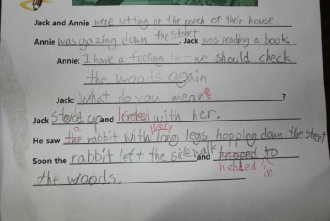 Jack and Annie were sitting on the porch of their house.
Annie was gazing down the street. Jack was reading a book.
Annie: I have a feeling we should check
the woods again
Jack: What do you mean ?
Jack stood up and looked with her.
He saw a rabbit with very long legs hopping down the street
Soon the rabbit left the sidewalk and hopped to
headed in
the woods.